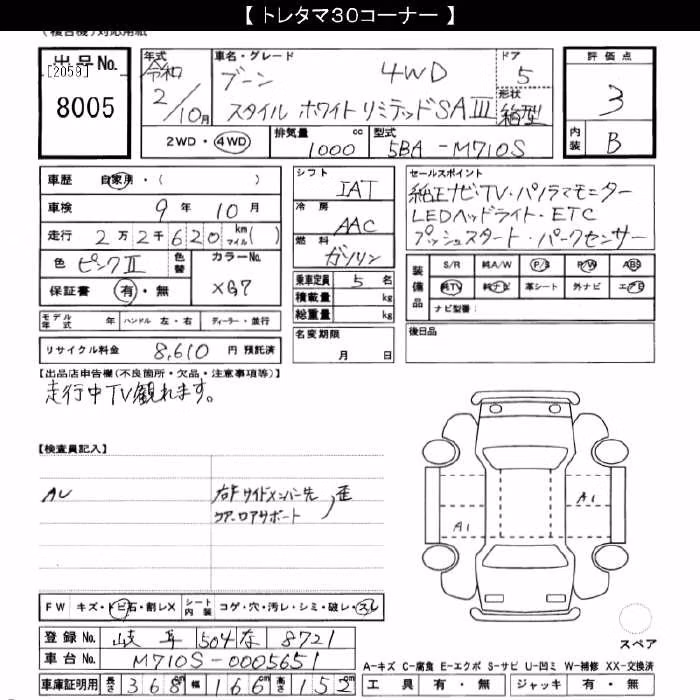 【 トレタマ30コーナー 】
(複合機)対応用紙
出品No.
[2059]
8005
年式 令和 2/10月
車名・グレード ブーン 4WD
スタイル ホワイトリミテッドSAⅢ
ドア 5
形状 箱型
2WD・4WD
排気量 1000 cc
型式 5BA-M710S
評価点 3
内装 B
車歴 自家用・( )
車検 9年 10月
走行 2万2千620 km マイル( )
色 ピンクⅡ 色替
カラーNo. XG7
保証書 有・無
シフト IAT
冷房 AAC
燃料 ガソリン
乗車定員 5 名
積載量 kg
総重量 kg
名変期限 月 日
セールスポイント
純正ナビ・TV・パノラマモニター
LEDヘッドライト・ETC
プッシュスタート・パークセンサー
装備品 S/R 純A/W P/S P/W ABS
純TV 純ナビ 革シート 外ナビ エアB
ナビ型番:
後日品
モデル年式 年 ハンドル 左・右 ディーラー・並行
リサイクル料金 8,610 円 預託済
【出品店申告欄(不良箇所・欠品・注意事項等)】
走行中TV観れます。
【検査員記入】
AU
右Fサイドメンバー先
コアーロアサポート 歪
A1
A1
FW キズ・トビ石・割レX シート内装 コゲ・穴・汚レ・シミ・破レ・スレ
登録No. 岐阜 504 な 8721
車台No. M710S-0005651
車庫証明用 長さ 368cm 幅 166cm 高さ 152cm
スペア
A-キズ C-腐食 E-エクボ S-サビ U-凹ミ W-補修 XX-交換済
工具 有・無 ジャッキ 有・無